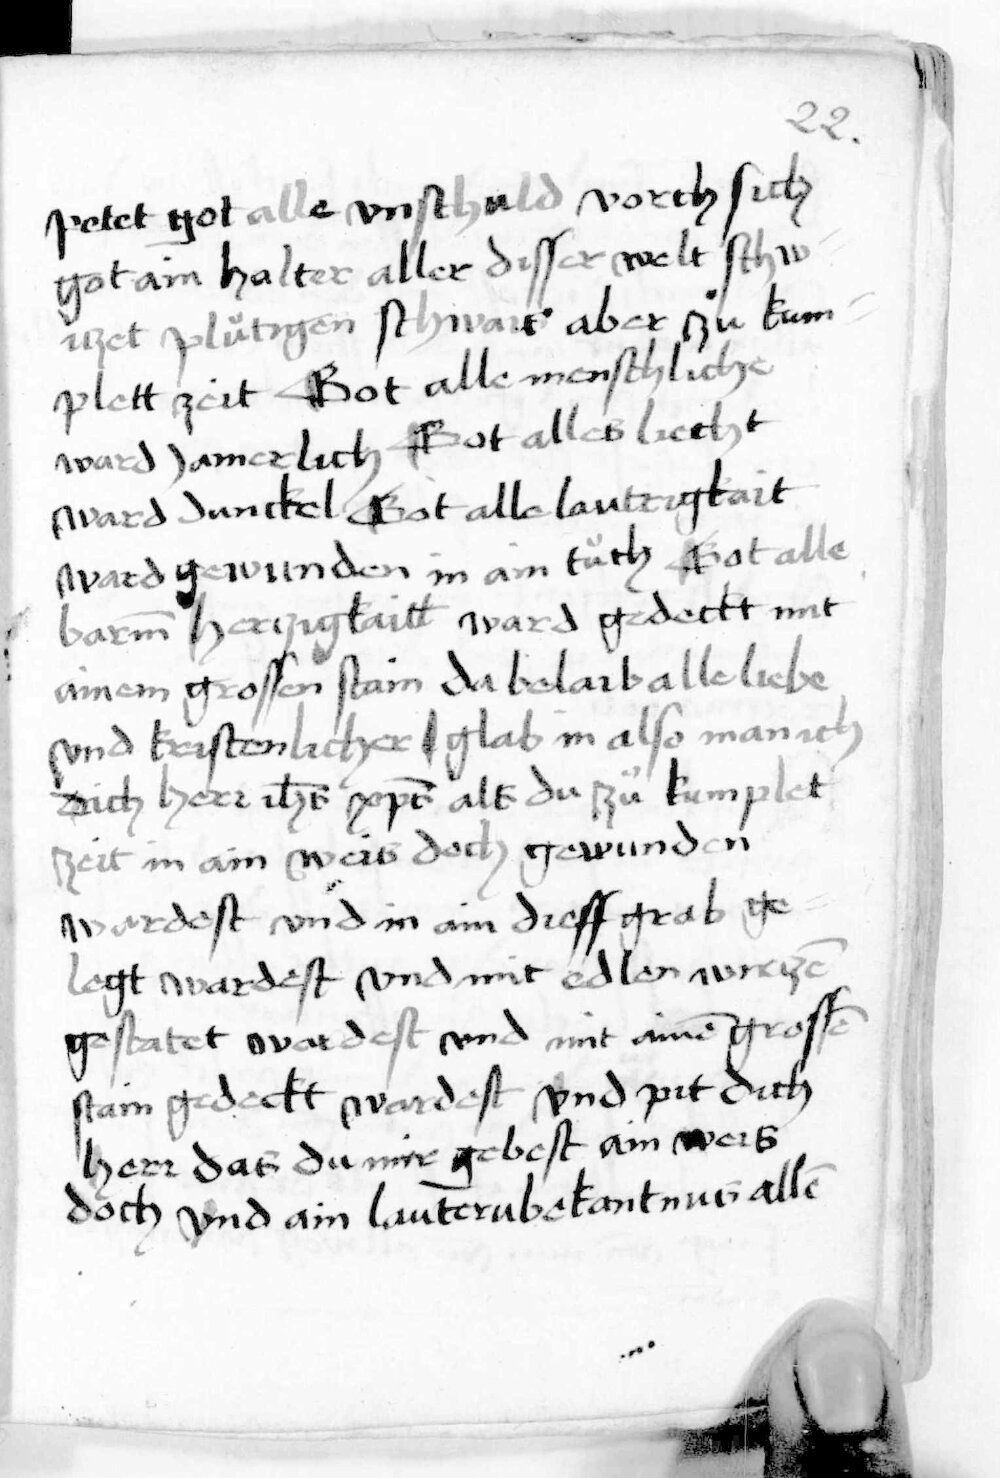 22.
petet got alle vnschuld vorch sich
got ain halter aller disser welt schw=
izet plůtigen schwais aber zů kum=
plett zeit Got alle menschliche
ward Jamerlich Got alles liecht
ward dunckel Got alle lautrigkait
ward gewunden in ain tůch Got alle
barm̄ herzigkaitt ward gedeckt mit
ainem grossen stain da belaib alle liebe
vnd kristenlicher glab in also man ich
dich herr ihs̄ xp̄s als du zů kumplet
zeit in ain weis doch gewunden
wardest vnd in ain dieff grab ge=
legt wardest vnd mit edlen wurzē
gestatet wardest vnd mit ainē grossē
stain gedeckt wardest vnd pit dich
herr das du mir gebest ain weis
doch vnd ain lauteru bekantnus allē